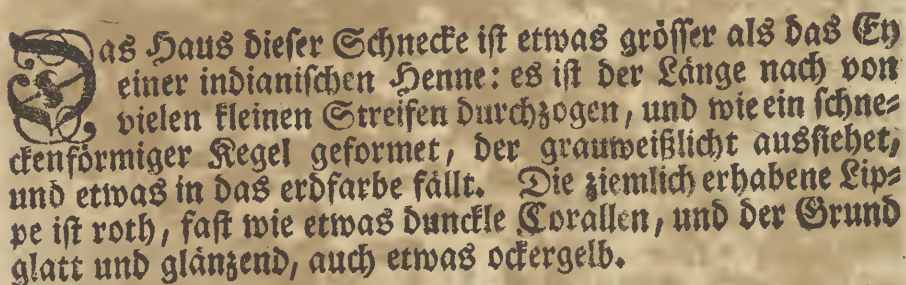 Das Haus dieser Schnecke ist etwas grösser als das Ey
einer indianischen Henne: es ist der Länge nach von
vielen kleinen Streifen durchzogen, und wie ein schne-
ckenförmiger Kegel geformet, der grauweißlicht aussiehet,
und etwas in das erdfarbe fällt. Die ziemlich erhabene Lip-
pe ist roth, fast wie etwas dunckle Corallen, und der Grund
glatt und glänzend, auch etwas ockergelb.